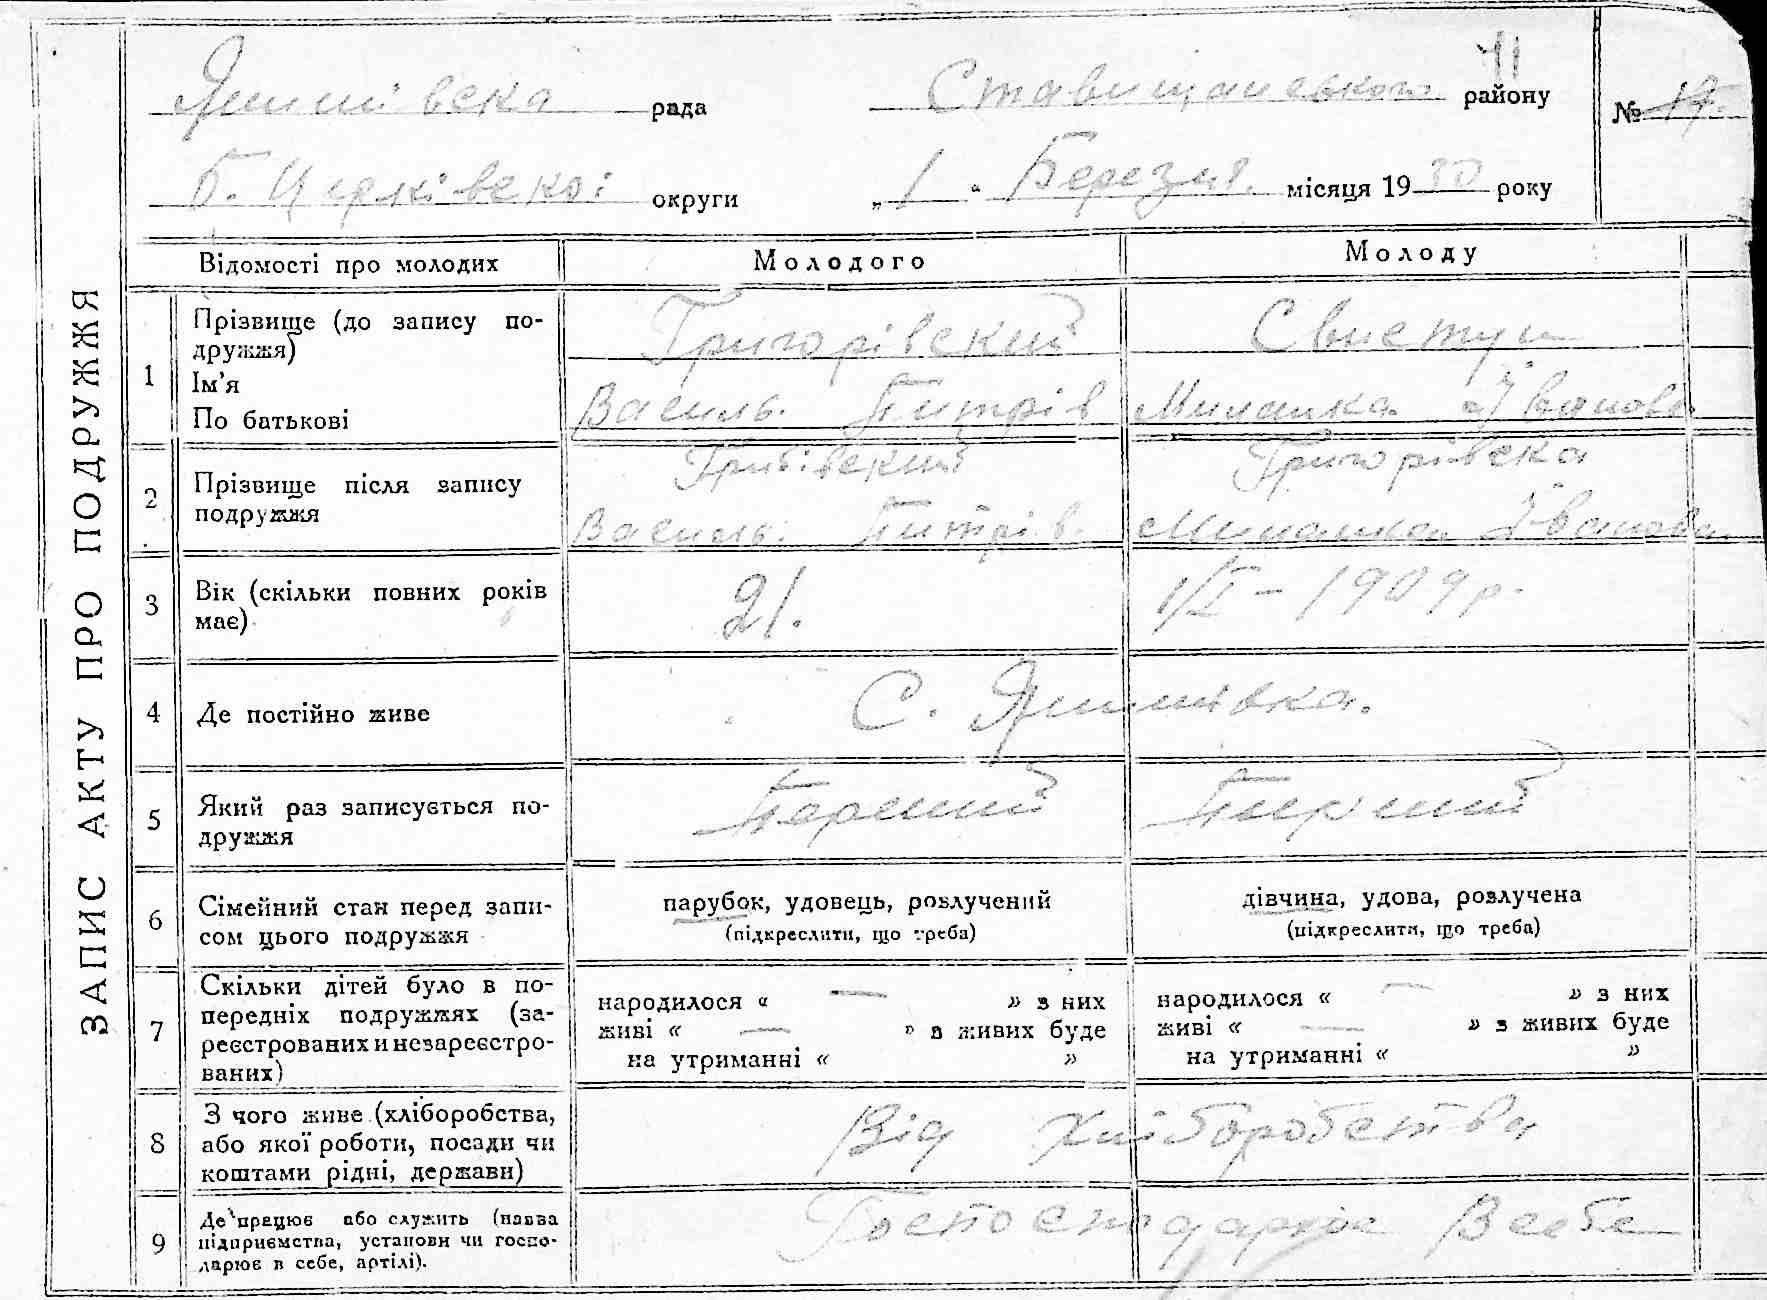 ЗАПИС АКТУ ПРО ПОДРУЖЖЯ
41
Яншівска рада Ставищанського району № 17.
Б. Церківської округи „ 1 “ Березня. місяця 1930 року
Відомості про молодих Молодого Молоду
1 Прізвище (до запису по-
дружжя)
Ім'я
По батькові
Григорівский Свистун
Василь. Питрів Миланка. Іванова
2 Прізвище після запису
подружжя
Григорівска
Василь. Питрів. Миланка Іванова
3 Вік (скільки повних років
має)
21. 1/I – 1909 р.
4 Де постійно живе
С. Яншівка.
5 Який раз записується по-
дружжя
Перший Перший
6 Сімейний стан перед запи-
сом цього подружжя
парубок, удовець, розлучений
(підкреслити, що треба)
дівчина, удова, розлучена
(підкреслити, що треба)
7 Скільки дітей було в по-
передніх подружжях (за-
реєстрованих и незареєстро-
ваних)
народилося « — » з них
живі « — » з живих буде
на утриманні « »
народилося « — » з них
живі « — » з живих буде
на утриманні « »
8 З чого живе (хліборобства,
або якої роботи, посади чи
коштами рідні, держави)
Від Хліборобства
9 Де працює або служить (назва
підприємства, установи чи госпо-
дарює в себе, артілі).
Всебе